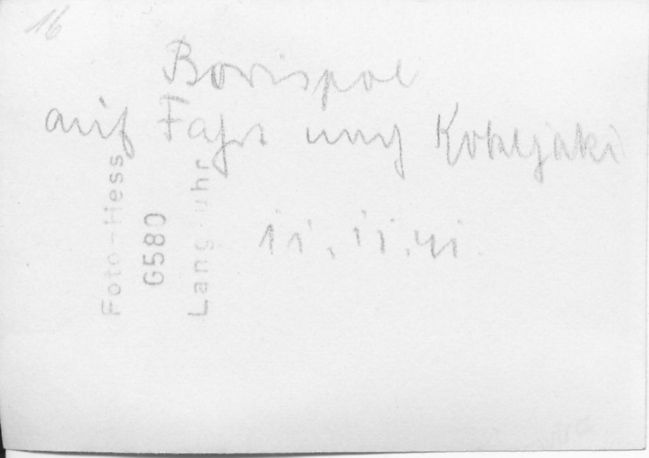 16
Borispol
auf Fahrt nach Kobeljaki
11.11.41
Foto-Hess
G580
Langfuhr